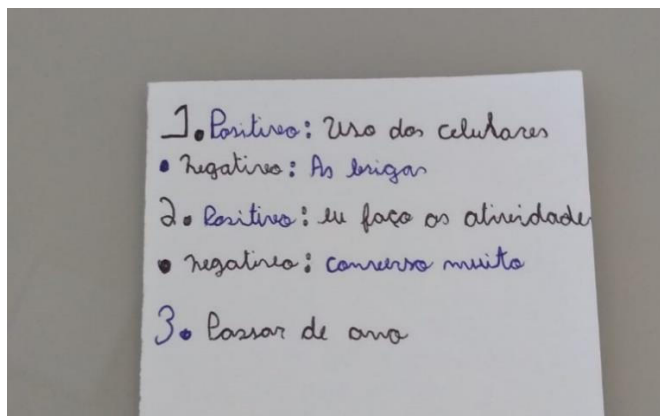 1. Positivo: Uso dos celulares
• negativo: As brigas
2. Positivo: eu faço as atividade
• negativo: converso muito
3. Passar de ano